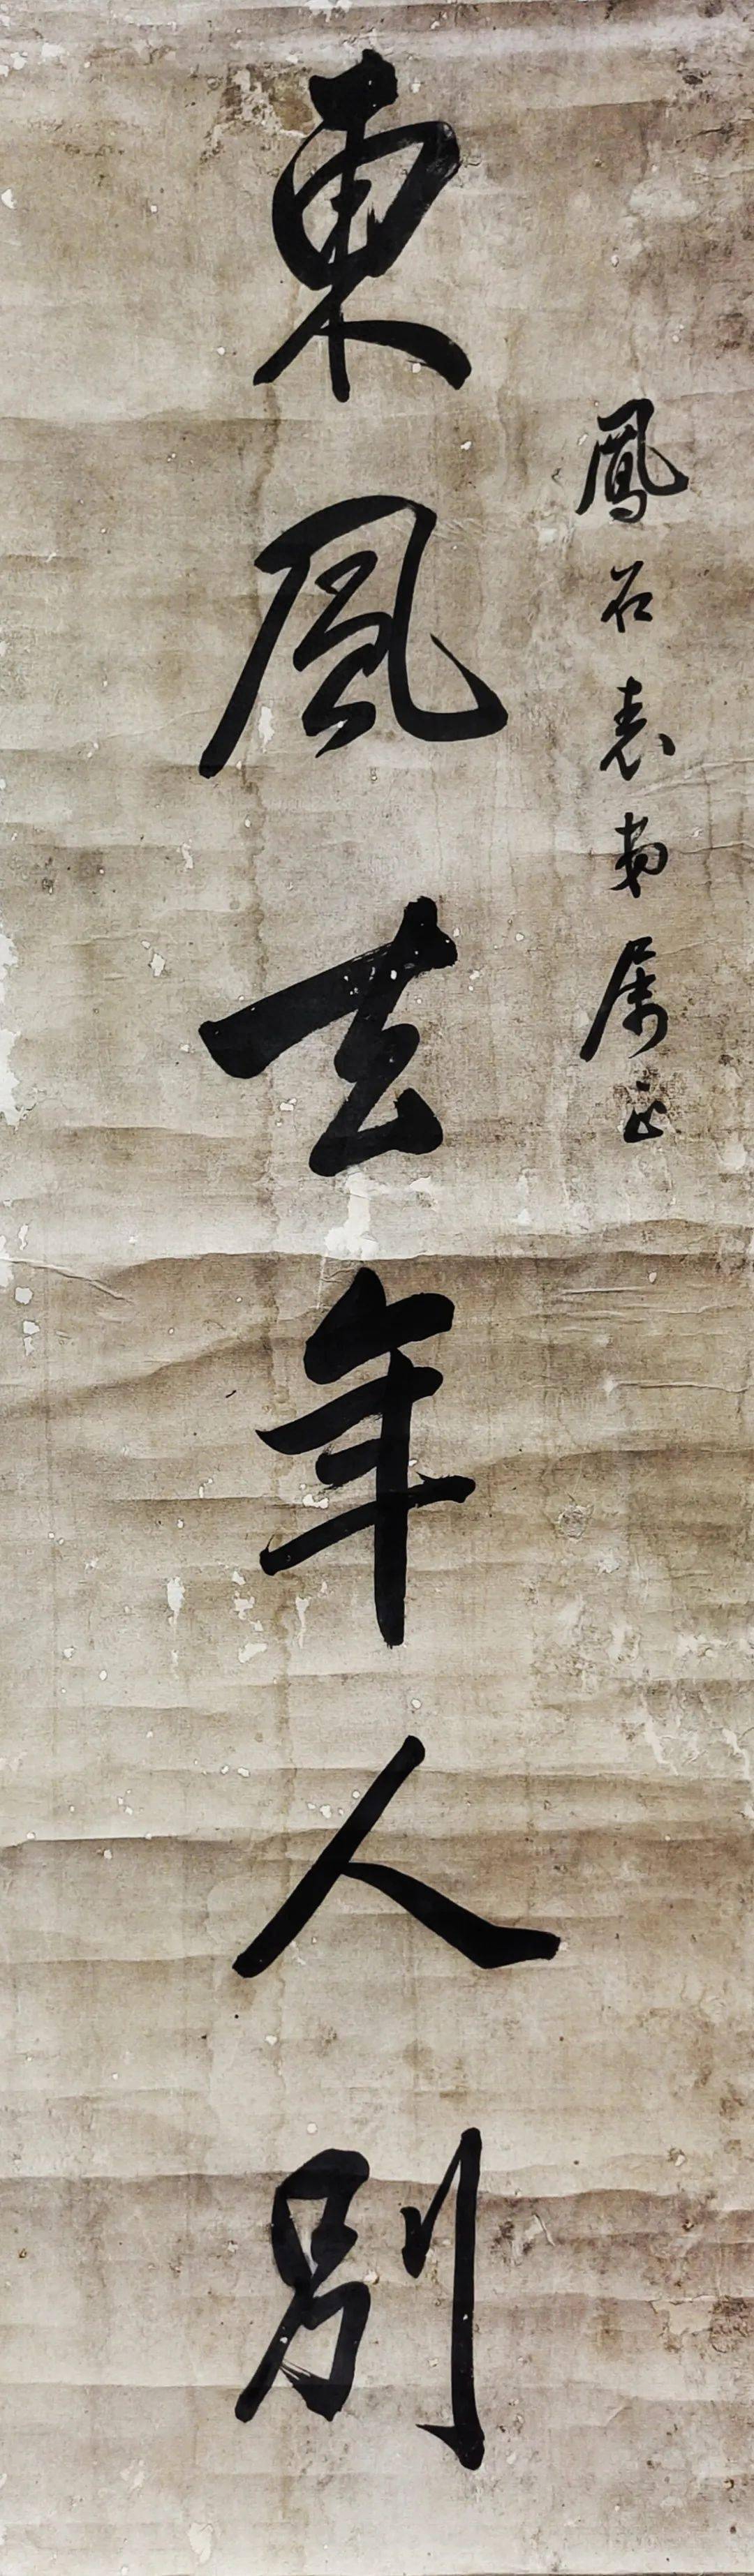 鳳石表弟屬正
東風去年人別